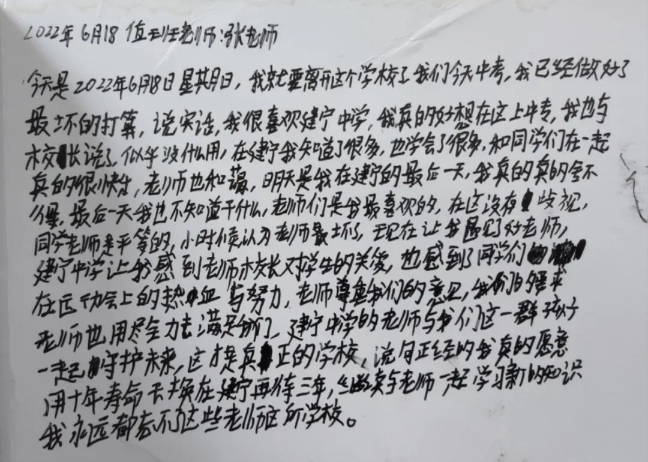 2022年6月18 值班老师:张老师
今天是2022年6月18日星期日,我就要离开这个学校了我们今天中考,我已经做好了
最坏的打算,说实话,我很喜欢建宁中学,我真的好想在这上中专,我也与
校长说了,似乎没什么用,在建宁我知道了很多,也学会了很多,和同学们在一起
真的很快乐,老师也和蔼,明天是我在建宁的最后一天,我真的真的舍不
得,最后一天我也不知道干什么,老师们是我最喜欢的,在这没有歧视,
同学老师是平等的,小时候认为老师最坏了,现在让我遇见好老师,
建宁中学让我感到老师校长对学生的关爱,也感到了同学们
在运动会上的热血与努力,老师尊重我们的意见,我们的要求
老师也用尽全力去满足我们,建宁中学的老师与我们这一群孩子
一起守护未来,这才是真正的学校,说句正经的我真的愿意
用十年寿命去换在建宁再待三年,继续与老师一起学习新的知识
我永远都忘不了这些老师这所学校。